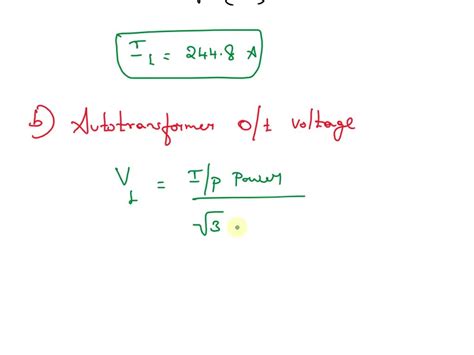 I_L = 244.8 A
b) Autotransformer o/t voltage
V_L = I/p Power
√3